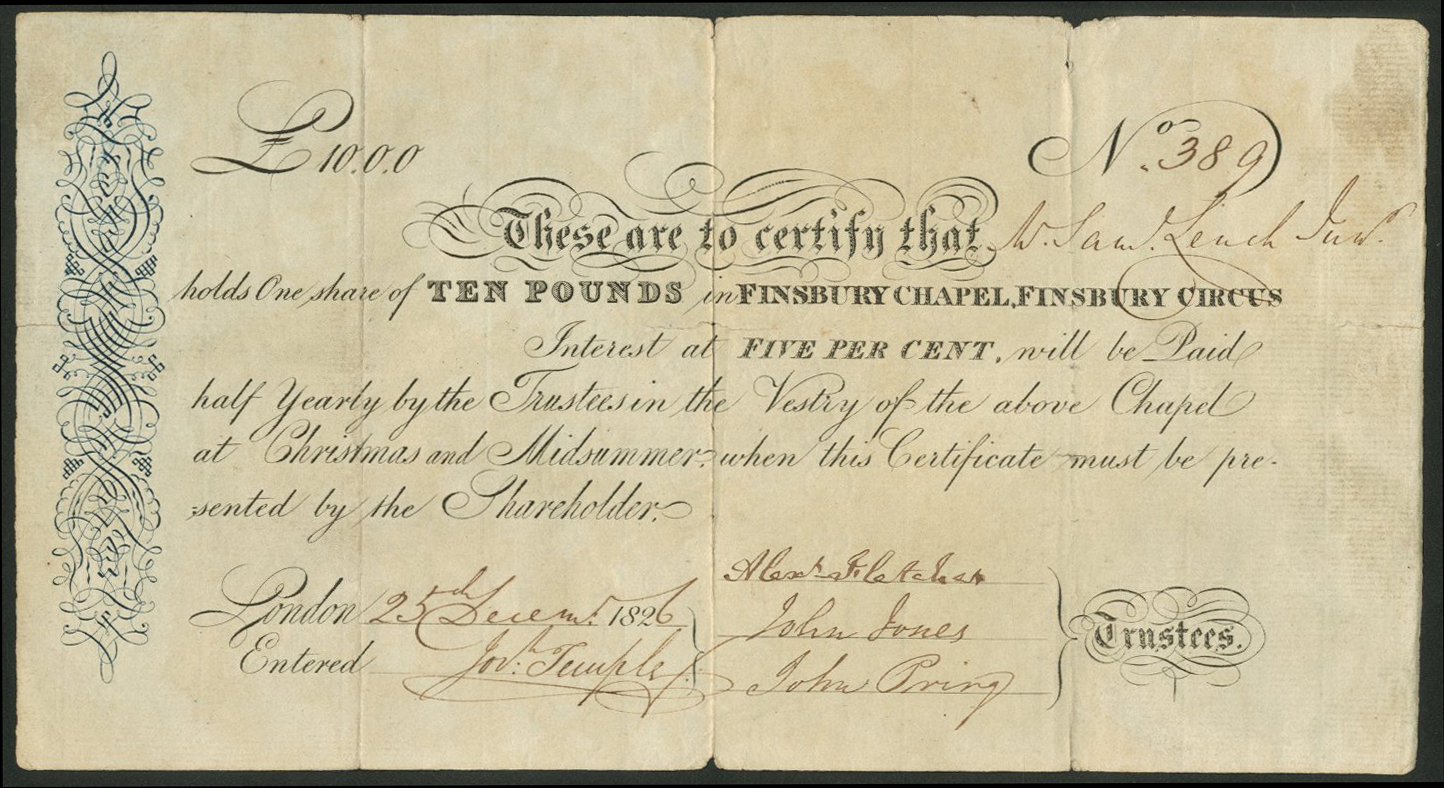 £ 10.0.0
No. 389
These are to certify that Mr. Saml. Leach Junr.
holds One share of TEN POUNDS in FINSBURY CHAPEL, FINSBURY CIRCUS
Interest at FIVE PER CENT, will be Paid
half Yearly by the Trustees in the Vestry of the above Chapel
at Christmas and Midsummer, when this Certificate must be pre-
sented by the Shareholder.
London 25th Decemr. 1826
Entered Temple
Alexr. Fletcher
John Jones
John Pring
Trustees.